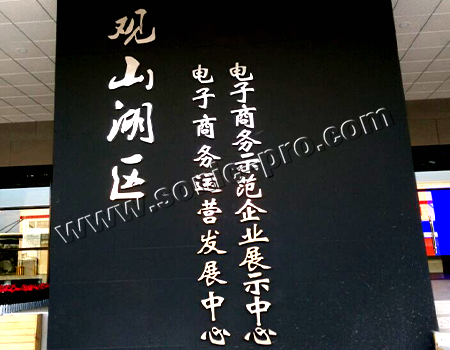 观山湖区
电子商务示范企业展示中心
电子商务运营发展中心
www.sonicspro.com